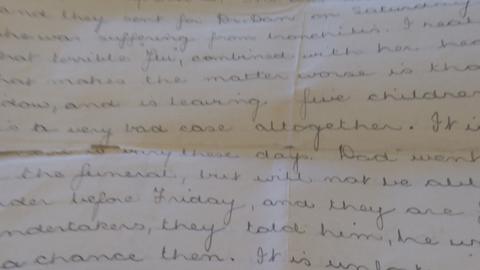 and they sent for Durban on Saturday
she was suffering from bronchitis. I hear
that terrible 'flu, combined with her hea
hat makes the matter worse is tha
idow, and is leaving five children
is a very bad case altogether. It is
these days. Dad went
the funeral, but will not be abl
before Friday, and they are
undertakers, they told him, he
a chance then. It is